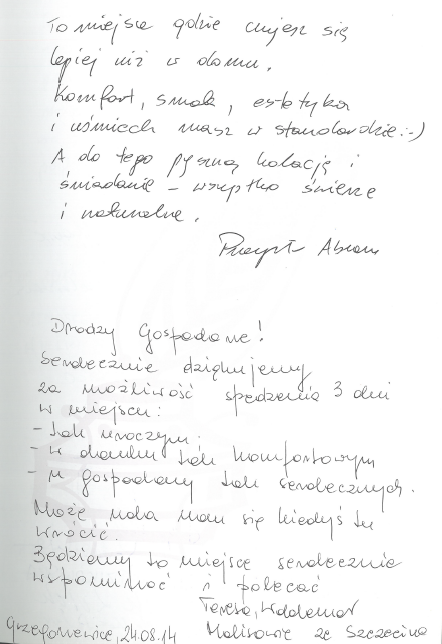 To miejsce gdzie czujesz się
lepiej niż w domu.
Komfort, smak, estetyka
i uśmiech masz w standardzie :-)
A do tego pyszną kolację i
śniadanie - wszystko świeże
i naturalne.
Drodzy Gospodarze!
Serdecznie dziękujemy
za możliwość spędzenia 3 dni
w miejscu:
- tak uroczym
- w domku tak komfortowym
- u gospodarzy tak serdecznych.
Może uda nam się kiedyś tu
wrócić.
Będziemy to miejsce serdecznie
wspominać i polecać
Teresa, Waldemar
24.08.14 ze Szczecina